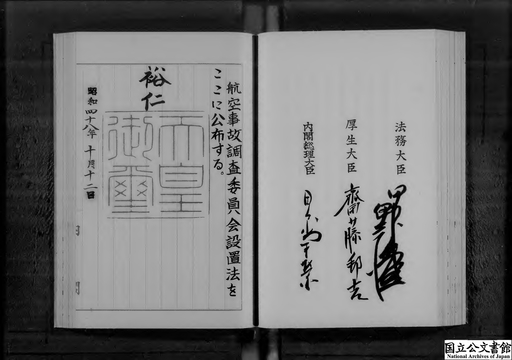 法務大臣
厚生大臣 齋藤邦吉
内閣総理大臣
航空事故調査委員会設置法を
ここに公布する。
裕仁
天皇御璽
昭和四十八年十月十二日
内閣
国立公文書館
National Archives of Japan